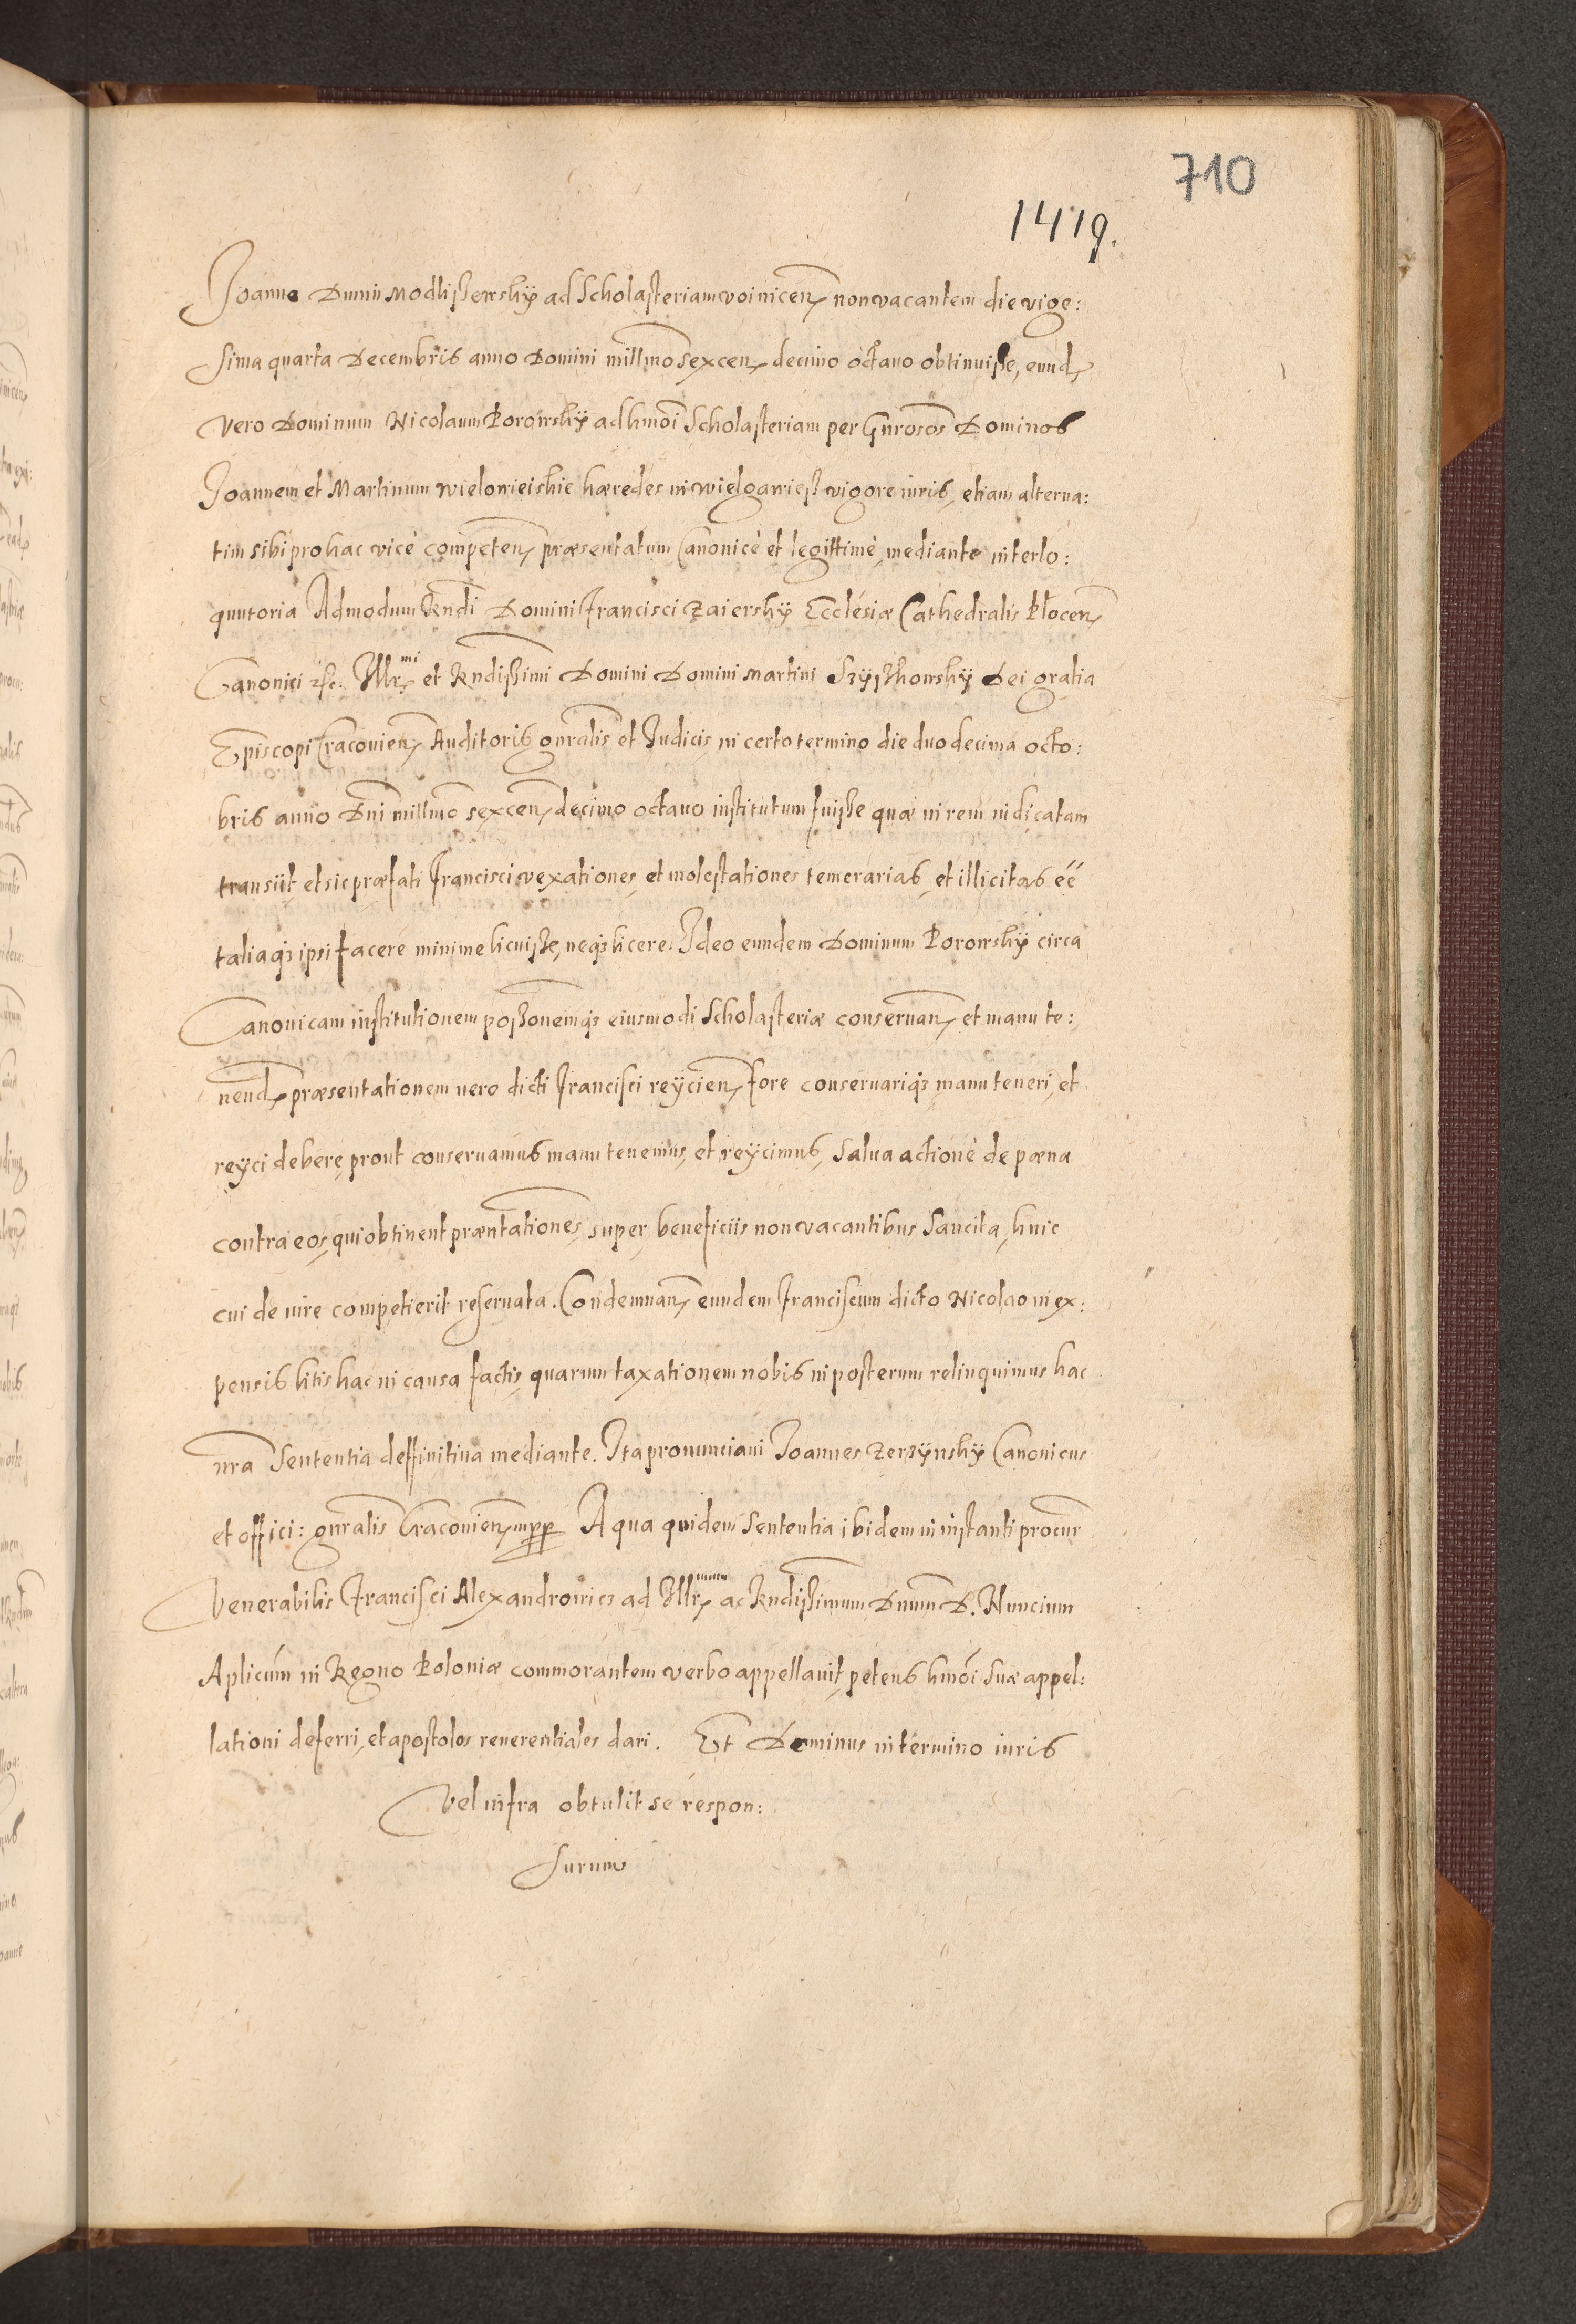 710
1419.
Joanne Dnum Modlißewsky ad Scholasteriam voinicen non vacantem die vige:
sima quarta Decembris anno Domini millmo sexcen decimo octauo obtinuiße, eund
vero Dominum Nicolaum Porowsky ad hmoi Scholasteriam per Gnrosos Dominos
Joannem et Martinum wielowieiskie hæredes in wielgawies vigore iuris, etiam alterna:
tim sibi pro hac vicè competen præsentatum Canonicè et legittimè, mediante interlo:
quutoria Admodum Rndi Domini Francisci Zaiersky Ecclesiæ Cathedralis Płocen
Canonici &c. Illr mi et Rndißimi Domini Domini Martini Szyßkowsky Dei gratia
Episcopi Cracouien Auditoris gnralis et Judicis in certo termino die duodecima octo:
bris anno Dni millmo sexcen decimo octauo institutum fuiße quæ in rem iudicatam
transiit, et sic præfati Francisci vexationes, et molestationes temerarias, et illicitas éé
taliaq3 ipsi facere minime licuiße, neq3 licere. Ideo eundem Dominum Porowsky circa
Canonicam institutionem poßonemq3 eiusmodi Scholasteriæ conseruan et manu te:
nend, præsentationem vero dicti Francisci reÿcien fore conseruariq3 manu teneri, et
reÿci debere, prout conseruamus manu tenemus, et reÿcimus, salua actionè de pæna
contra eos, qui obtinent præntationes, super beneficiis non vacantibus Sancita, huic
cui de iure competierit reseruata. Condemnan eundem Franciscum dicto Nicolao in ex:
pensis litis hac in causa factis, quarum taxationem nobis in posterum relinquimus hac
nra Sententia deffinitiua mediante. Ita pronunciaui Joannes Zerzynsky Canonicus
et offici: gnralis Cracouien mpp A qua quidem Sententia ibidem in instanti procur
Venerabilis Francisci Alexandrowicz ad Illr mum ac Rndißimum Dnum D. Nuncium
Aplicum in Regno Poloniæ commorantem verbo appellauit, petens hmoi suæ appel:
lationi deferri, et apostolos reuerentiales dari. Et Dominus in termino iuris
Vel infra obtulit se respon:
surum